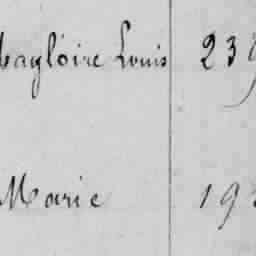 Magloire Louis 239
Marie 193